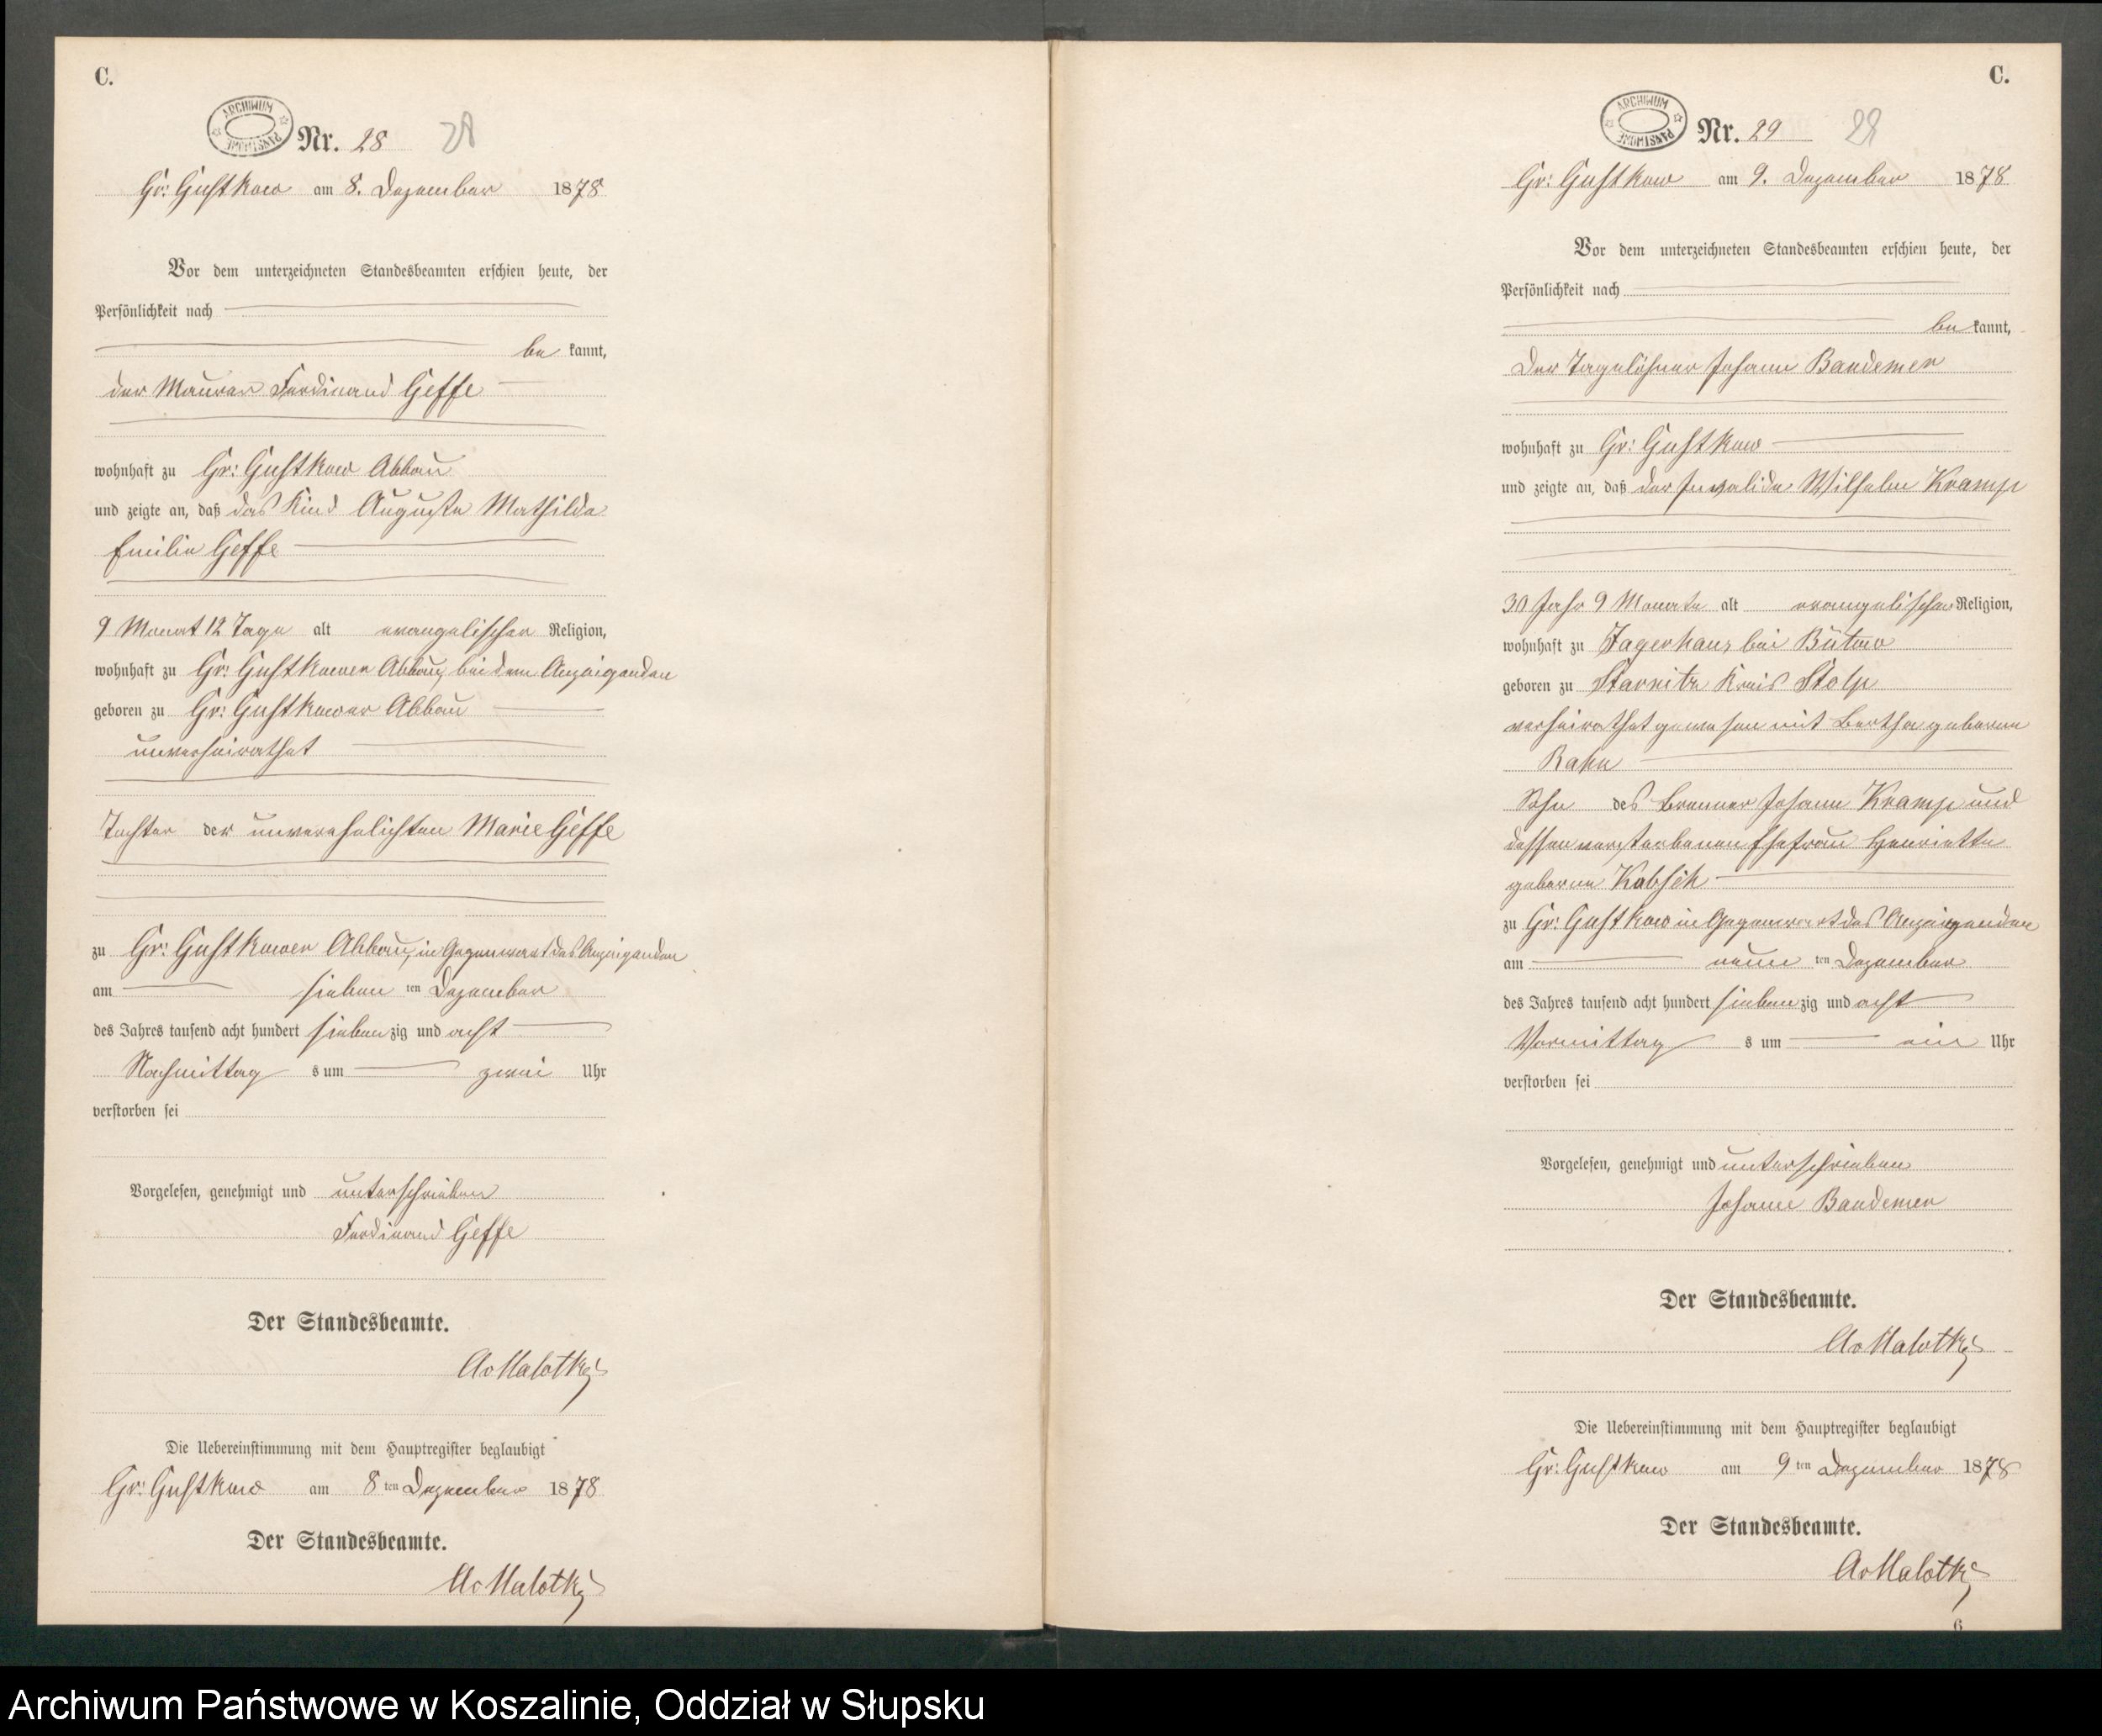 C.
ARCHIWUM PAŃSTWOWE
Nr. 28 28
Gr: Gustkow am 8. Dezember 1878
Vor dem unterzeichneten Standesbeamten erschien heute, der
Persönlichkeit nach
be kannt,
der Maurer Ferdinand Geffe
wohnhaft zu Gr: Gustkow Abbau
und zeigte an, daß das Kind Auguste Mathilde
Emilie Geffe
9 Monat 12 Tage alt evangelischer Religion,
wohnhaft zu Gr: Gustkower Abbau, bei dem Anzeigenden
geboren zu Gr: Gustkower Abbau
unverheirathet
Tochter der unverehelichten Marie Geffe
zu Gr: Gustkower Abbau, in Gegenwart des Anzeigenden
am sieben ten Dezember
des Jahres tausend acht hundert sieben zig und acht
Nachmittag s um zwei Uhr
verstorben sei
Vorgelesen, genehmigt und unterschrieben
Ferdinand Geffe
Der Standesbeamte.
AvMalotky
Die Uebereinstimmung mit dem Hauptregister beglaubigt
Gr: Gustkow am 8 ten Dezember 1878
Der Standesbeamte.
AvMalotky
C.
ARCHIWUM PAŃSTWOWE
Nr. 29 29
Gr: Gustkow am 9. Dezember 1878
Vor dem unterzeichneten Standesbeamten erschien heute, der
Persönlichkeit nach
be kannt,
Der Tagelöhner Johann Bandemer
wohnhaft zu Gr: Gustkow
und zeigte an, daß der Invalide Wilhelm Kramp
30 Jahr 9 Monate alt evangelischer Religion,
wohnhaft zu Jagerhaus bei Bütow
geboren zu Starnitz Kreis Stolp
verheirathet gewesen mit Bertha geborene
Rahn
Sohn des Brenner Johann Kramp und
dessen verstorbenen Ehefrau Henriette
geborne Kobsch
zu Gr: Gustkow in Gegenwart des Anzeigenden
am neun ten Dezember
des Jahres tausend acht hundert sieben zig und acht
Vormittag s um ein Uhr
verstorben sei
Vorgelesen, genehmigt und unterschrieben
Johann Bandemer
Der Standesbeamte.
AvMalotky
Die Uebereinstimmung mit dem Hauptregister beglaubigt
Gr: Gustkow am 9 ten Dezember 1878
Der Standesbeamte.
AvMalotky
6
Archiwum Państwowe w Koszalinie, Oddział w Słupsku